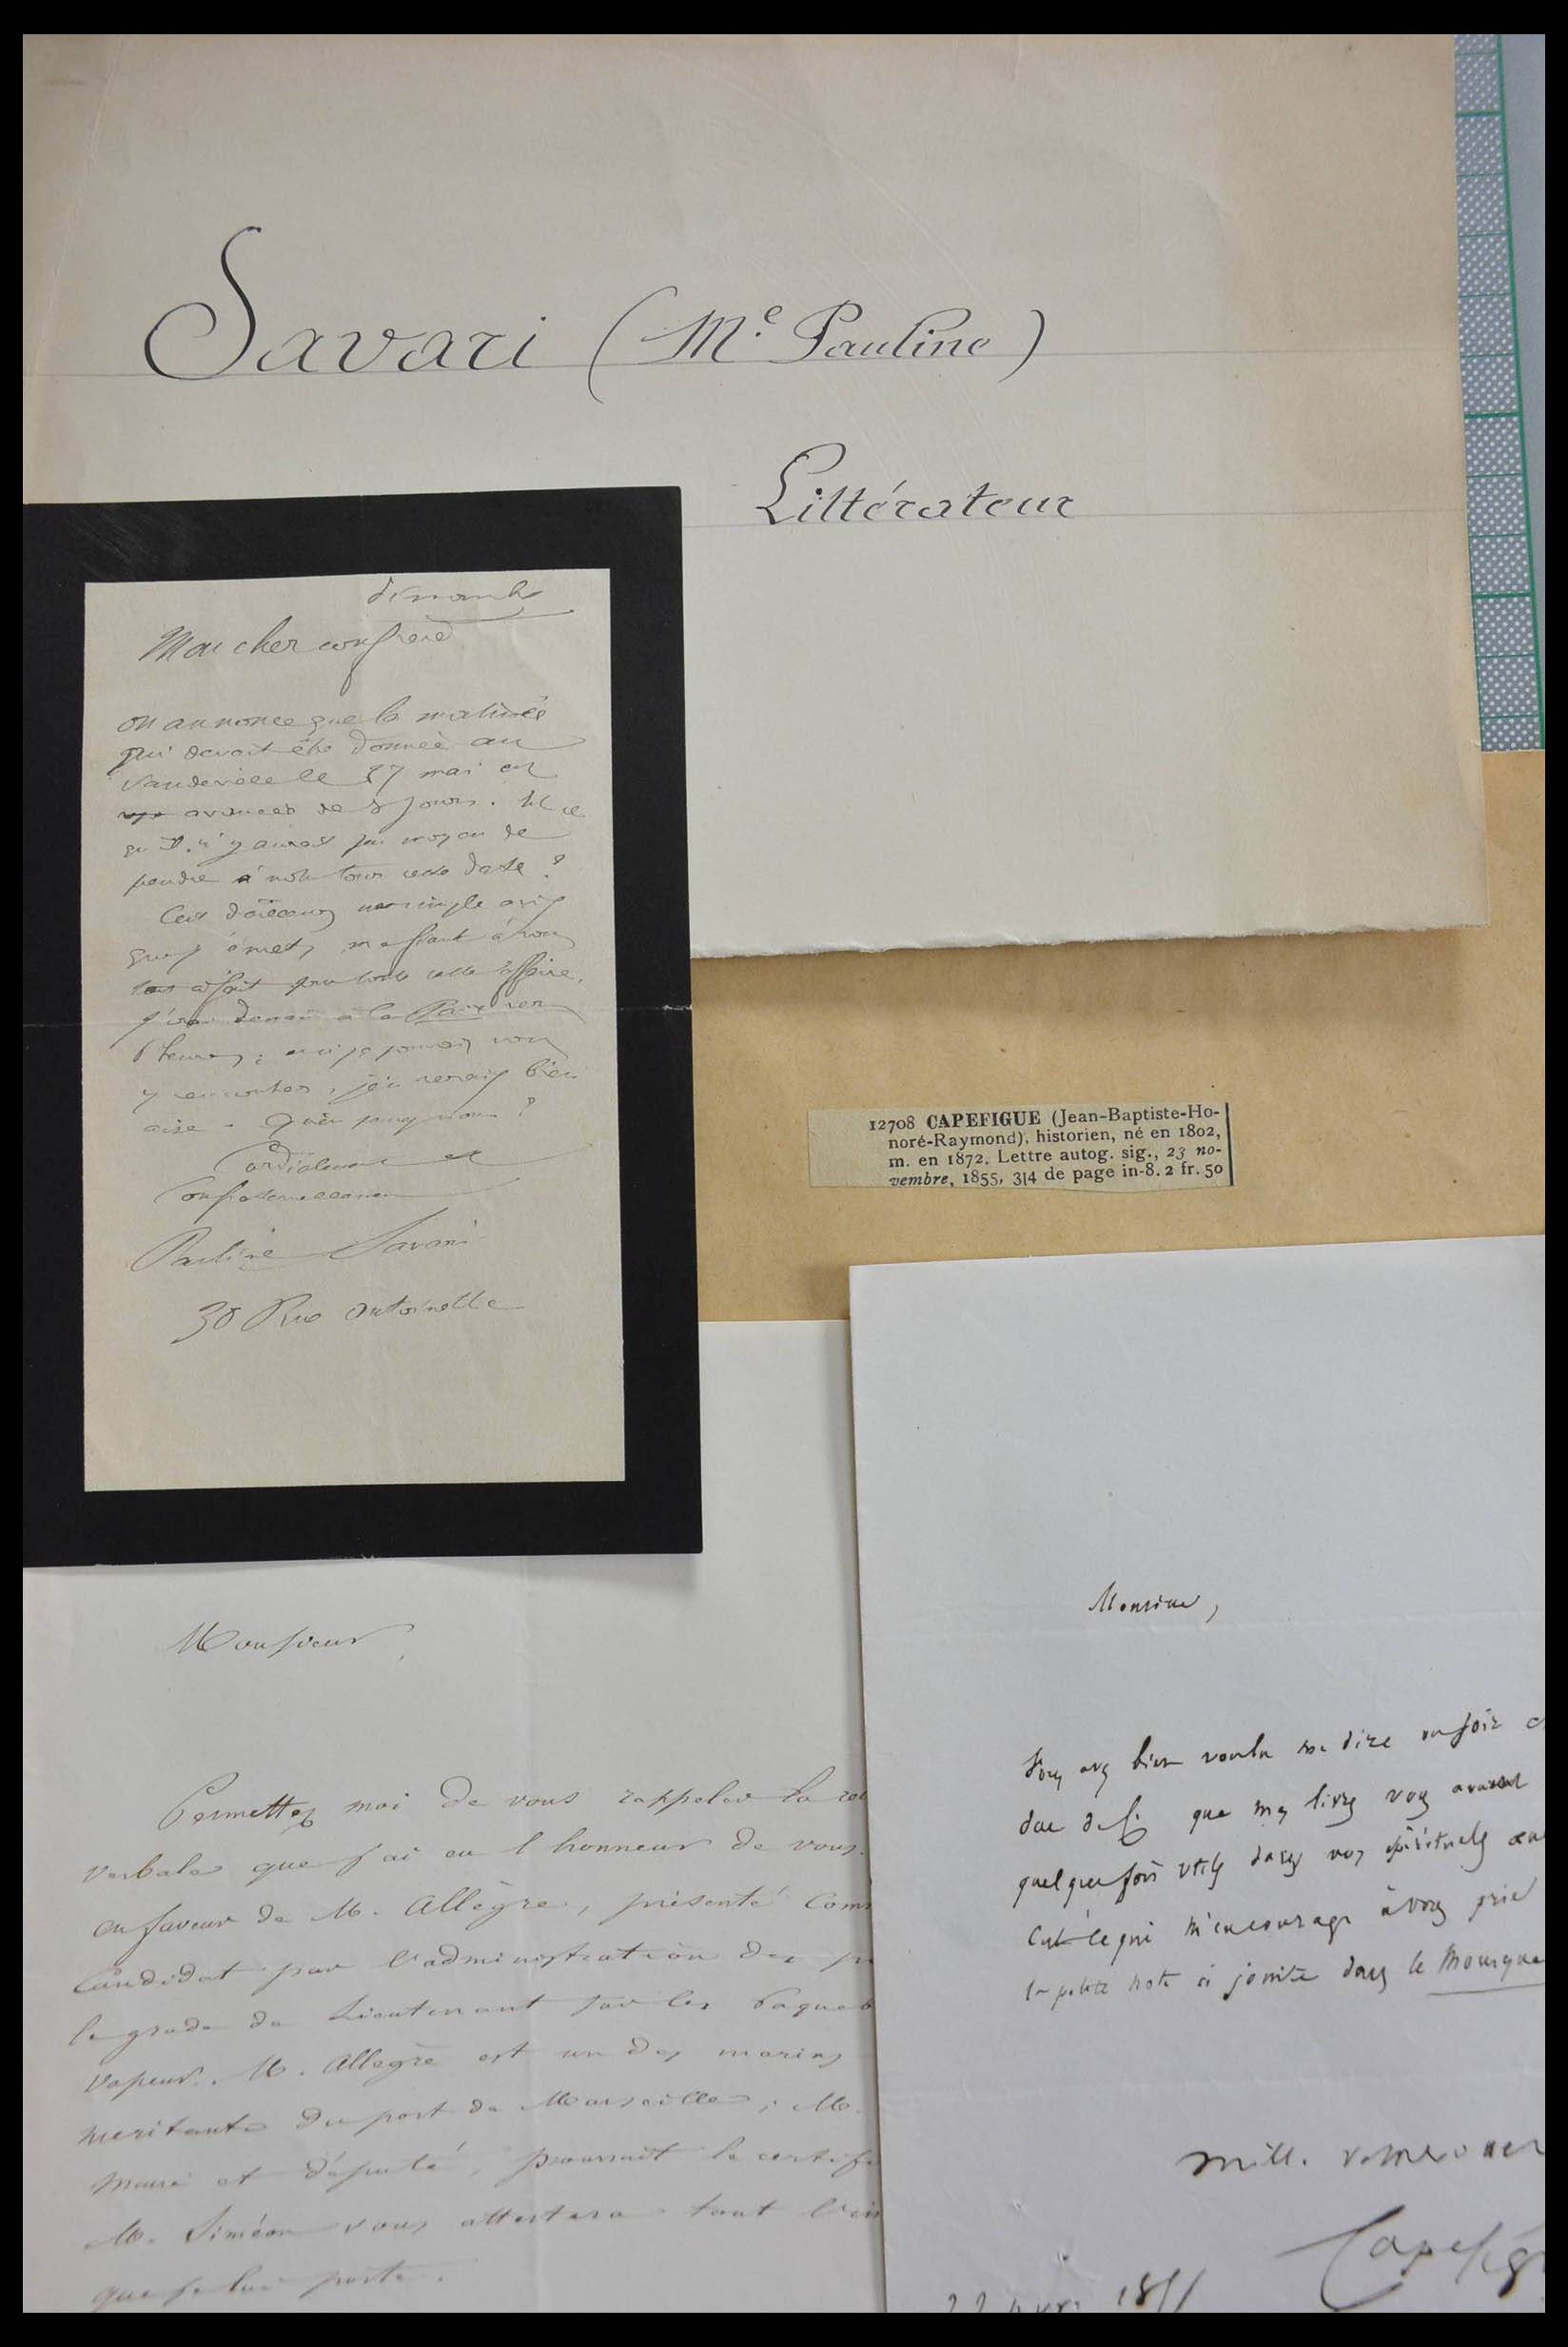 Savari (Me. Pauline)
Littérateur
dimanche
Mon cher confrère
on annonce que la matinée
qui devait être donnée au
Vaudeville le 27 mai est
avancée de 8 jours. Est ce
qu'il n'y aurait pas moyen de
prendre à notre tour cette date ?
C'est d'ailleurs un simple avis
que j'émets, m'en fiant à vous
tout à fait pour toute cette affaire.
J'irai demain à la Paix vers
heures ; si je pouvais vous
y rencontrer, j'en serais bien
aise.
Cordialement et
Confraternellement
Pauline Savari
30 Rue Antoinette
12708 CAPEFIGUE (Jean-Baptiste-Ho-
noré-Raymond), historien, né en 1802,
m. en 1872. Lettre autog. sig., 23 no-
vembre, 1855, 3|4 de page in-8. 2 fr. 50
Monsieur,
Permettez moi de vous rappeler la
verbale que j'ai eu l'honneur de vous
en faveur de M. Allègre, présenté
Candidat par l'administration des
le grade de Lieutenant sur les
vapeur. M. Allègre est un des marins
meritants du port de Marseille ; M.
maire et député, pourrait le
M. Siméon vous attestera tout
que je lui porte.
Monsieur,
Vous avez bien voulu me dire un soir
que mes livres vous avaient
quelquefois utiles dans vos spirituels
C'est ce qui m'encourage à vous prier
la petite note ci jointe dans le
mille